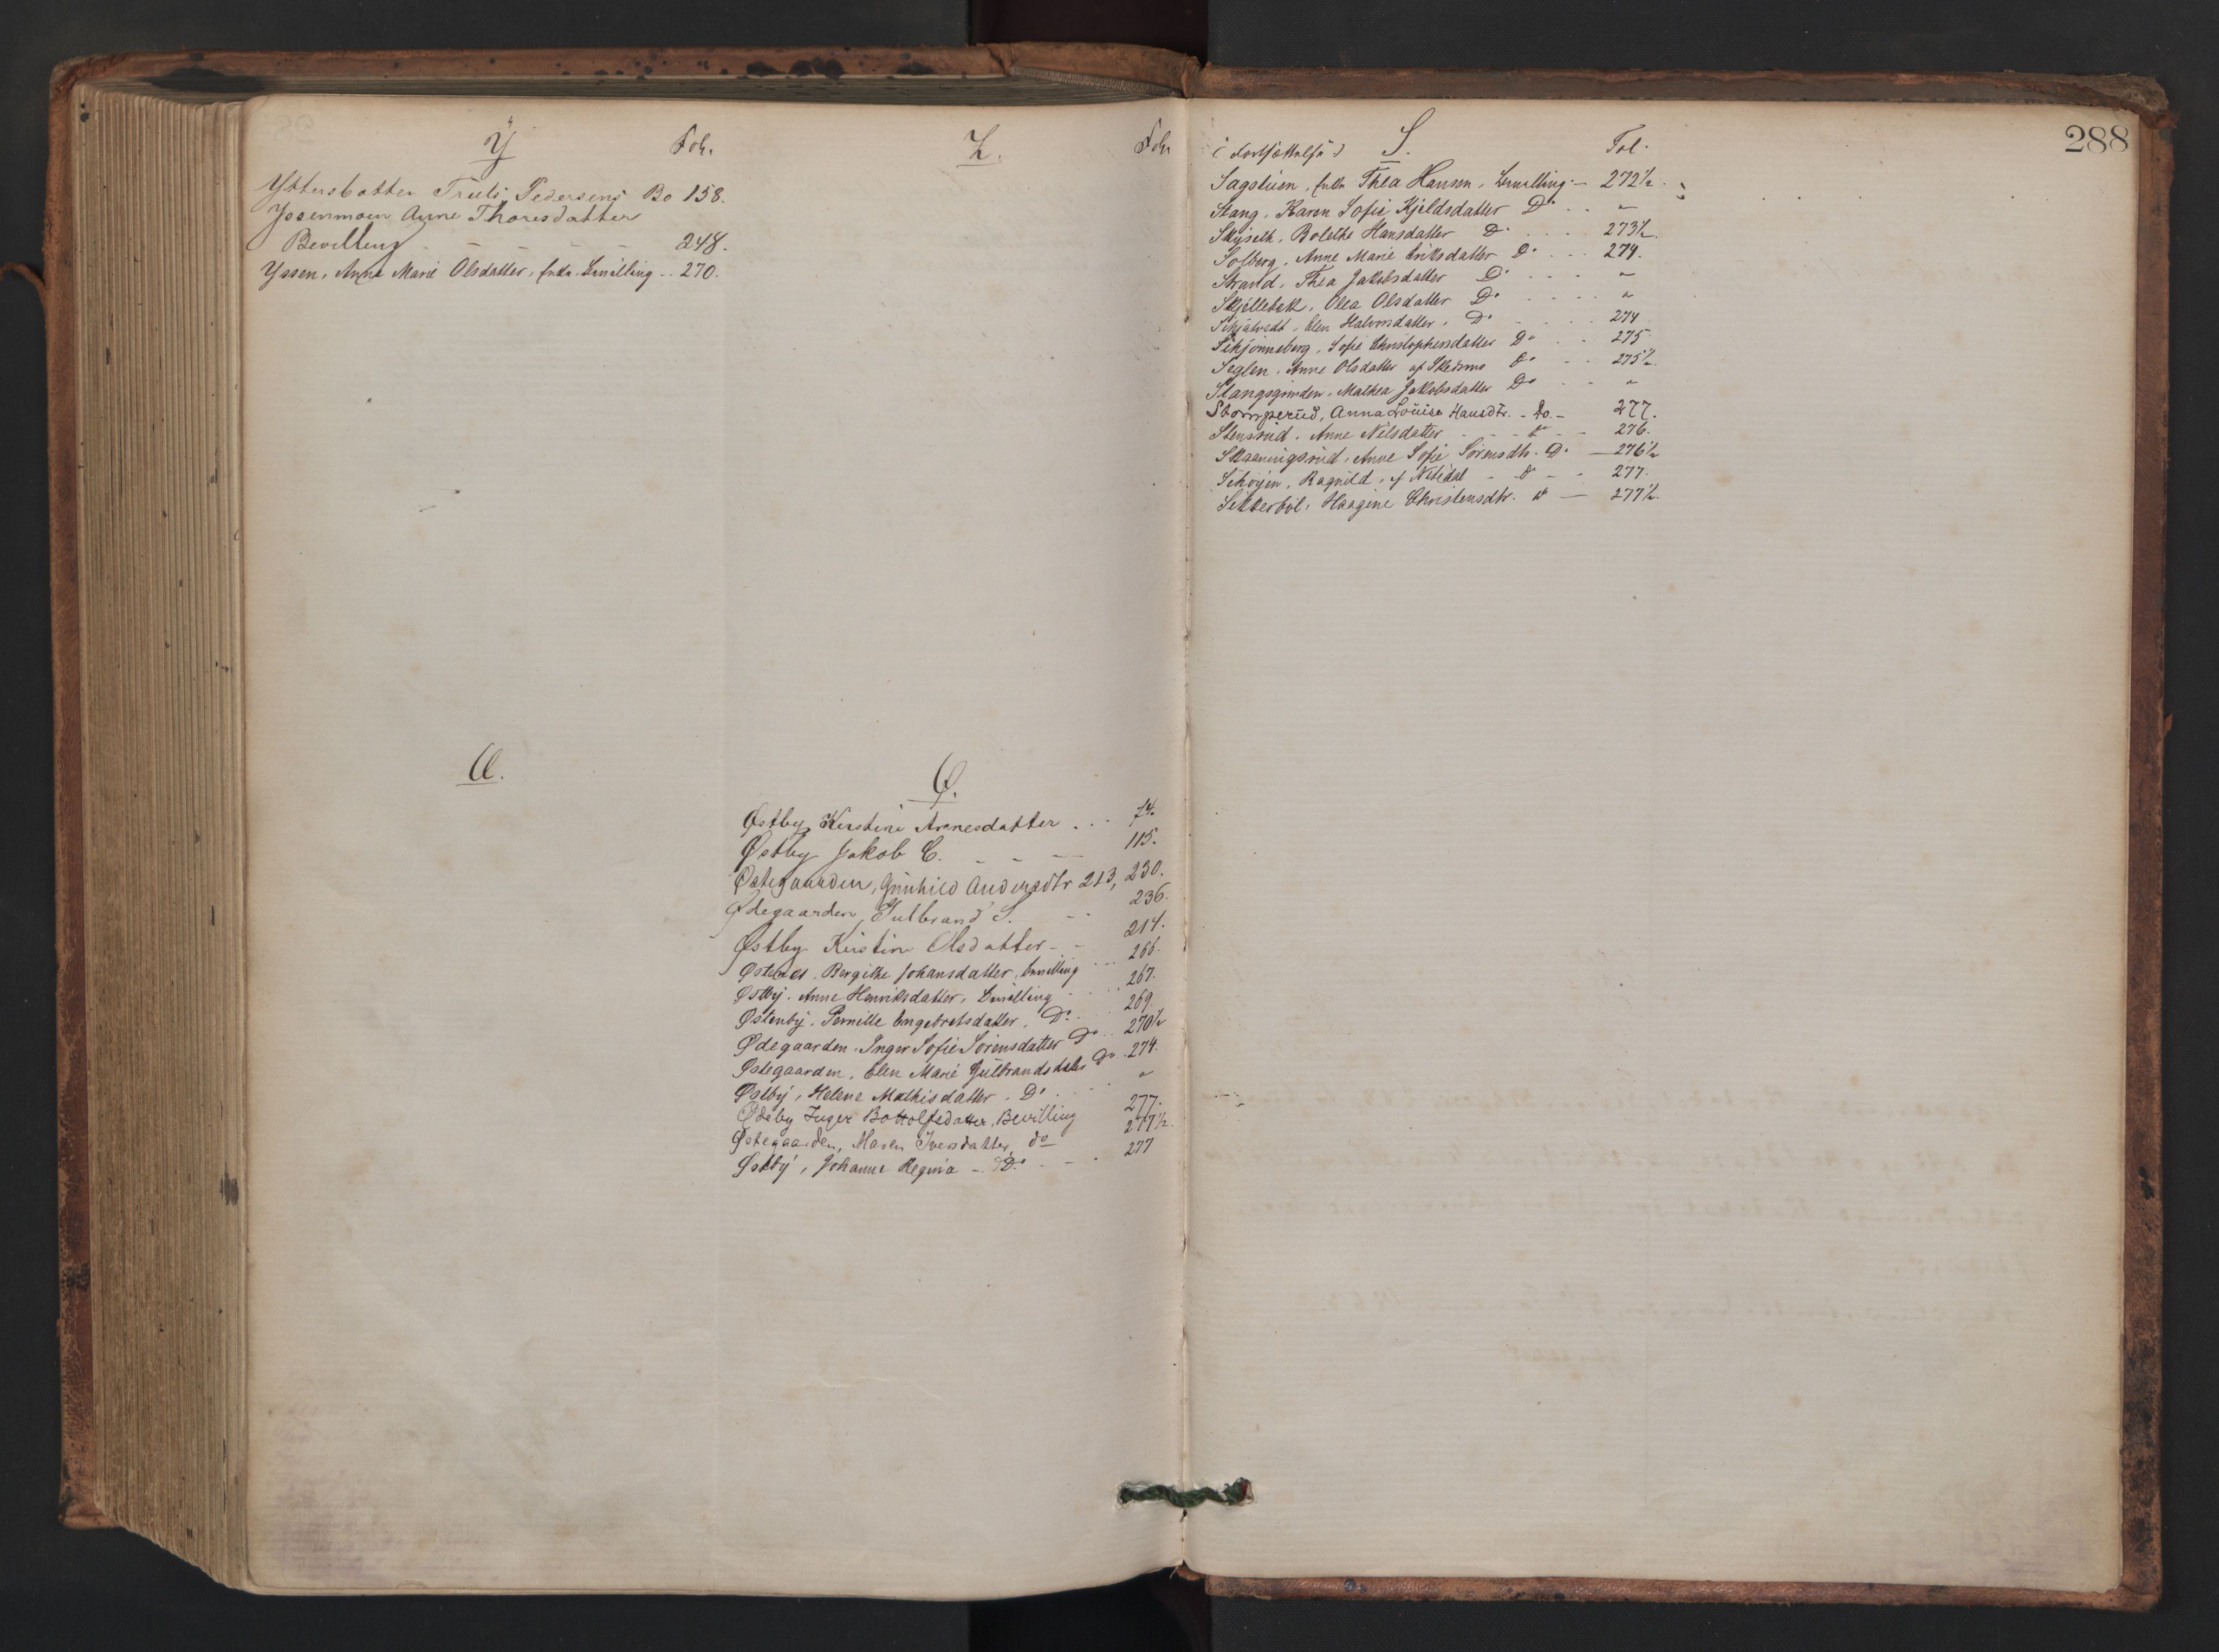 Y Fol.
Yttersbotten Truls Pedersens Bo 158.
Yssenmoen Anne Thoresdatter
Bevilling - - - - - 248.
Yssen, Anne Marie Olsdatter, Enke-Bevilling .. 270.
Z. Fol.
Æ.
Ø.
Østby, Kirstine Arnesdatter . . . 74.
Østby Jakob C. - - - 115.
Østegaarden, Gunhild Andersdtr 213, 230.
Ødegaarden, Gulbrand S. - - 236.
Østby Kirstine Olsdatter - - 214.
Østenes, Bergithe Johansdatter, Bevilling ... 266.
Østby, Anne Henriksdatter, Bevilling . . . 267.
Østenby, Pernille Engebretsdatter, Do. . . 269.
Ødegaarden, Inger Sofie Sørensdatter Do .. 270½
Østegaarden, Elen Marie Gulbrandsdatter Do .. 274.
Østby, Helene Mathisdatter, Do . . . "
Ødeby Inger Bottolfsdatter, Bevilling 277.
Østegaarden, Maren Iversdatter, do 277½
Østby, Johanne Regina - Do. - - - 277
288
(Fortsættelse) S. Fol.
Sagstuen, Enke Thea Hansen, Bevilling - 272½.
Stang, Karen Sofie Kjeldsdatter Do . . "
Skjseth, Bolethe Hansdatter Do . . . 273½.
Solberg, Anne Marie Eriksdatter Do . . . 274.
Strand, Thea Jakobsdatter Do . . . "
Skjellebek, Olea Olsdatter Do . . . . "
Elen Halvorsdatter, Do . . . . 274
Schjønneberg, Sofie Christophersdatter Do . . 275
Seglen, Anne Olsdatter af Skedsmo Do . . 275½.
Stangsgrinden, Mathea Jakobsdatter Do - - "
Stomperud, Anna Louise Hansdtr. - Do. - 277.
Stensrud, Anne Nilsdatter - - - Do - - 276.
Skaanningsrud, Anne Sofie Sørensdtr. Do - 276½
Schøyen, Ragnild, af Nitedal - Do - - 277.
Sekkerbøl, Haagine Christensdtr. Do — 277½.